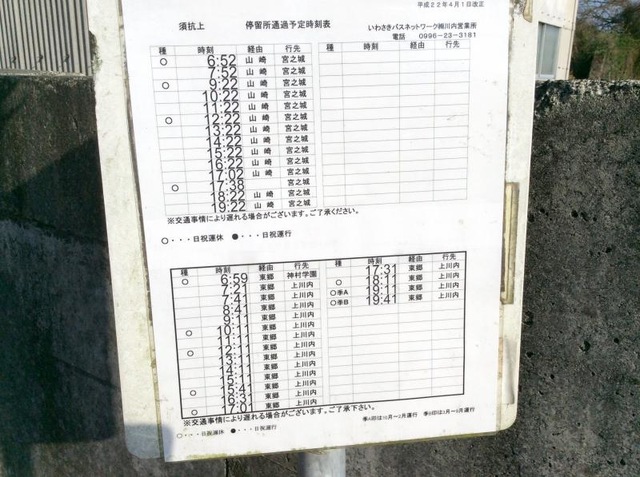 平成22年4月1日改正
須抗上 停留所通過予定時刻表 いわさきバスネットワーク㈱川内営業所
電話 0996-23-3181
種 時刻 経由 行先 種 時刻 経由 行先
○ 6:52 山崎 宮之城
7:22 山崎 宮之城
○ 9:22 山崎 宮之城
10:22 山崎 宮之城
11:22 山崎 宮之城
○ 12:22 山崎 宮之城
13:22 山崎 宮之城
14:22 山崎 宮之城
15:22 山崎 宮之城
16:22 山崎 宮之城
17:02 山崎 宮之城
○ 17:38 宮之城
18:22 山崎 宮之城
19:22 山崎 宮之城
※交通事情により遅れる場合がございます。ご了承ください。
○・・・日祝運休 ●・・・日祝運行
種 時刻 経由 行先
○ 6:59 東郷 神村学園
7:21 東郷 上川内
7:41 東郷 上川内
8:41 東郷 上川内
9:11 東郷 上川内
○ 10:11 東郷 上川内
11:11 東郷 上川内
○ 12:11 東郷 上川内
13:11 東郷 上川内
14:11 東郷 上川内
15:11 東郷 上川内
○ 15:41 東郷 上川内
16:31 東郷 上川内
○ 17:01 東郷 上川内
種 時刻 経由 行先
17:31 東郷 上川内
○ 18:11 東郷 上川内
○季A 19:11 東郷 上川内
○季B 19:41 東郷 上川内
※交通事情により遅れる場合がございます。ご了承下さい。
季A印は10月~2月運行 季B印は3月~9月運行
○・・・日祝運休 ●・・・日祝運行